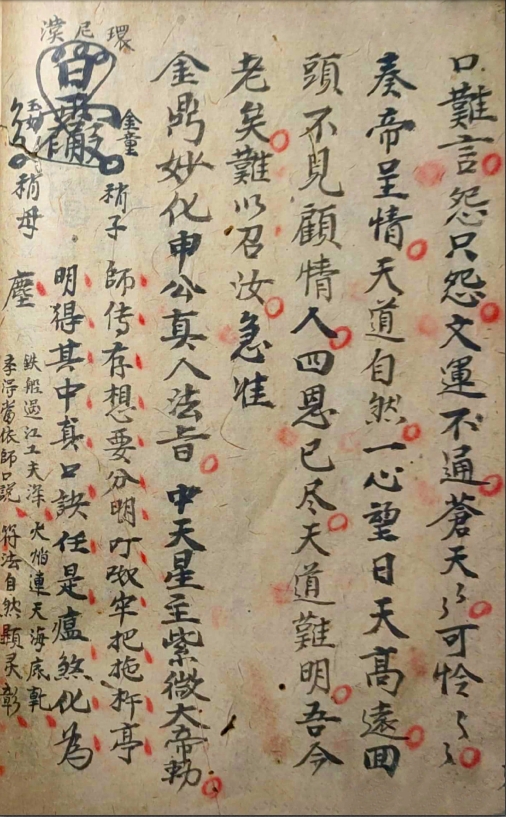 口難言怨只怨文運不通蒼天〻可怜〻〻
奏帝呈情天道自然一心望日天高遠回
頭不見顧情人四恩已尽天道難明吾今
老矣難以召汝急准
金鼎妙化申公真人法旨 中天星主紫微大帝勅
環尼
金童 稍子 師传存想要分明叮㘈牢把拖杵亭
明得其中真口訣任是瘟煞化為
稍母 塵
鉄船過江工夫深 火焰連天海底乾
當依師口說 符法自然顕灵彰